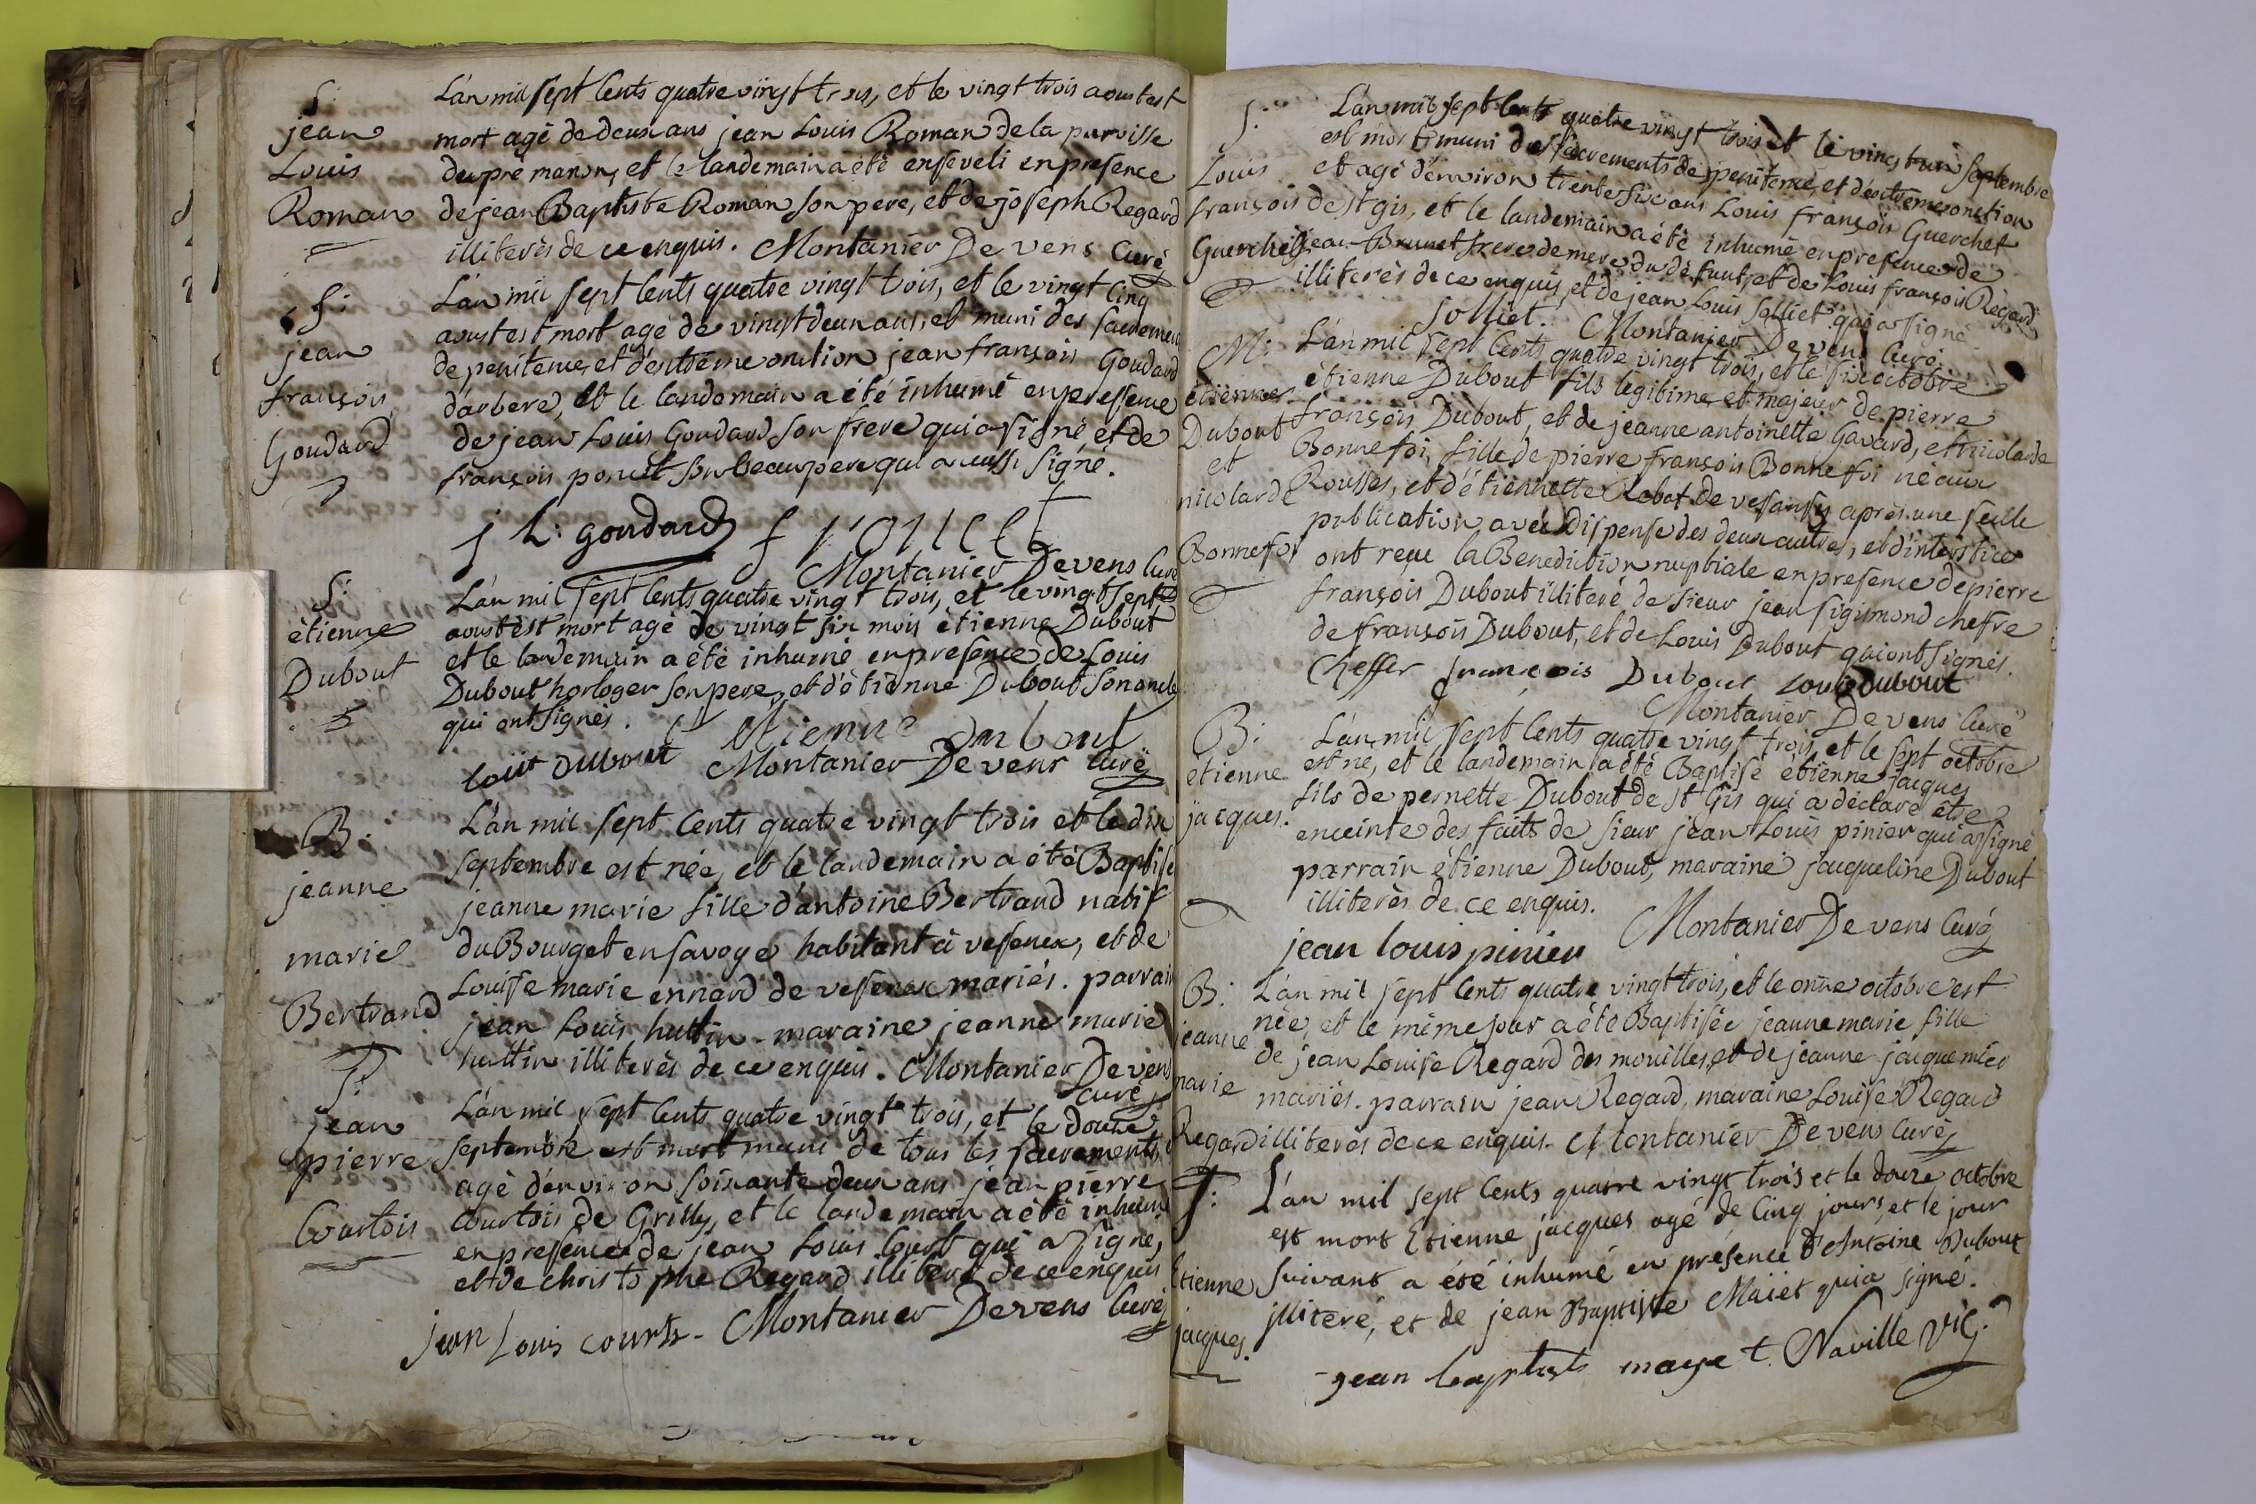 S:
jean
Louis
Roman
L'an mil sept Cents quatre vingt trois, et le vingt trois aoust est
mort agé de deux ans jean Louis Roman de la parroisse
de prémanon, et le landemain a été enseveli en presence
de jean Baptiste Roman son pere, et de joseph Regard
illiterés de ce enquis. Montanier De vens Curé
S:
jean
françois
Goudard
L'an mil sept Cents quatre vingt trois, et le vingt Cinq
aoust est mort agé de vingt deux ans, et muni des sacremens
de penitence, et d'extréme onction jean françois Goudard
d'arbere, et le landemain a été inhumé en presence
de jean Louis Goudard son frere qui a signé, et de
françois poncet son beaupere qui a aussi signé.
j L: goudard f poncet
Montanier De vens Curé
S:
étienne
Dubout
L'an mil sept Cents quatre vingt trois, et le vingt sept
aoust est mort agé de vingt six mois étienne Dubout
et le landemain a été inhumé en presence de Louis
Dubout horloger son pere, et d'étienne Dubout son oncle
qui ont signés.
etienne Dubout
Louis Dubout Montanier De vens Curé
B:
jeanne
marie
Bertrand
L'an mil sept Cents quatre vingt trois et le dix
septembre est née, et le landemain a été Baptisée
jeanne marie fille d'antoine Bertrand natif
du Bourget en savoye habitant à vesenex, et de
Louise marie ennard de vesenex mariés. parrain
jean Louis huttin maraine jeanne marie
huttin illiterés de ce enquis. Montanier De vens
Curé
S:
jean
pierre
Courtois
L'an mil sept Cents quatre vingt trois, et le douze
septembre est mort muni de tous les sacrements,
agé d'environ soixante deux ans jean pierre
Courtois de Grilly, et le landemain a été inhumé
en presence de jean Louis Court qui a signé,
et de christophe Regard illiteré de ce enquis
jean Louis courts - Montanier De vens Curé
S:
Louis
françois
Guerchet
L'an mil sept Cents quatre vingt trois et le vingt un septembre
est mort muni des sacrements de penitence, et d'extreme onction
et agé d'environ trente six ans Louis françois Guerchet
de st gis, et le landemain a été inhumé en presence de
jean Brunet frere de mere du défunt, et de Louis françois Regard
illiterés de ce enquis, et de jean Louis solliet qui a signé
Solliet. Montanier De vens Curé
M:
étienne
Dubout
et
nicolarde
Bonnefoi
L'an mil sept Cents quatre vingt trois, et le six octobre
étienne Dubout fils legitime, et majeur de pierre
françois Dubout, et de jeanne antoinette Gavard, et nicolarde
Bonnefoi, fille de pierre françois Bonnefoi né aux
Rousses, et d'étiennette Rebat de vesansy après une seulle
publication avec Dispense des deux autres, et d'interstice
ont reçu la Benediction nuptiale en presence de pierre
françois Dubout illiteré, de sieur jean sigismond chefre
de françois Dubout, et de Louis Dubout qui ont signés.
Cheffer françois Dubout Louis Dubout
Montanier De vens Curé
B:
étienne
jacques.
L'an mil sept Cents quatre vingt trois, et le sept octobre
est né, et le landemain a été Baptisé étienne jacques
fils de pernette Dubout de st Gis qui a déclaré étre
enceinte des faits de sieur jean Louis pinier qui a signé
parrain étienne Dubout, maraine jacqueline Dubout
illiterés de ce enquis.
jean louis pinier Montanier De vens Curé
B:
jeanne
marie
Regard
L'an mil sept Cents quatre vingt trois, et le onze octobre est
née, et le méme jour a été Baptisée jeanne marie fille
de jean Louise Regard des mouilles, et de jeanne jacquemier
mariés. parrain jean Regard, maraine Louise Regard
illiterés de ce enquis. Montanier De vens Curé
S:
Etienne
jacques.
L'an mil sept Cents quatre vingt trois et le douze octobre
est mort Etienne jacques agé de Cinq jours, et le jour
suivant a été inhumé en présence d'Antoine Dubout
illiteré, et de jean Baptiste Maiet qui a signé.
jean baptiste mayet. Naville Vic.